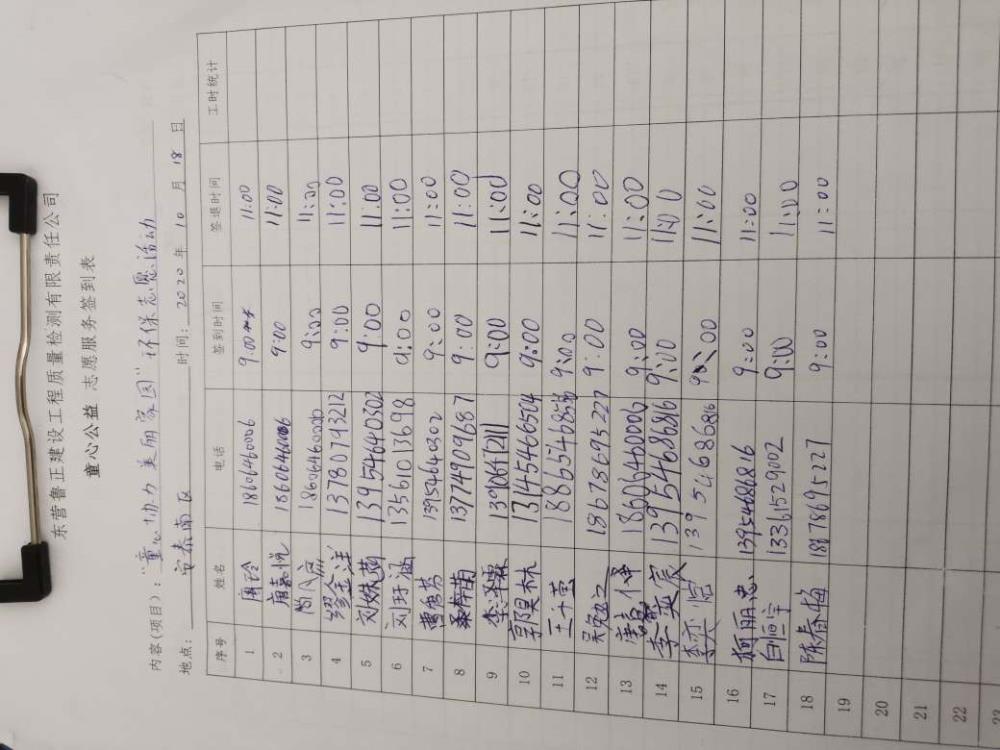 东营鲁正建设工程质量检测有限责任公司
童心公益 志愿服务签到表
内容(项目): "童心协力 美丽家园" 环保志愿活动
地点: 安泰南区 时间: 2020 年 10 月 18 日
序号 姓名 电话 签到时间 签退时间 工时统计
1 唐玲 18606460006 9:00 11:00
2 唐嘉悦 18606460006 9:00 11:00
3 18606460006 9:00 11:00
4 缪金洋 13780793212 9:00 11:00
5 刘姝燕 13954640302 9:00 11:00
6 刘玗涵 13561013698 9:00 11:00
7 13954640302 9:00 11:00
8 13774909687 9:00 11:00
9 李泽霖 13906471211 9:00 11:00
10 郭昊林 13145466504 9:00 11:00
11 王子萱 18865468556 9:00 11:00
12 18678695227 9:00 11:00
13 18606460006 9:00 11:00
14 李奕宸 13954686816 9:00 11:00
15 李奕霏 13954686816 9:00 11:00
16 柯丽忠 13954686816 9:00 11:00
17 白恒宇 13361529002 9:00 11:00
18 陈春梅 18678695227 9:00 11:00
19
20
21
22
23